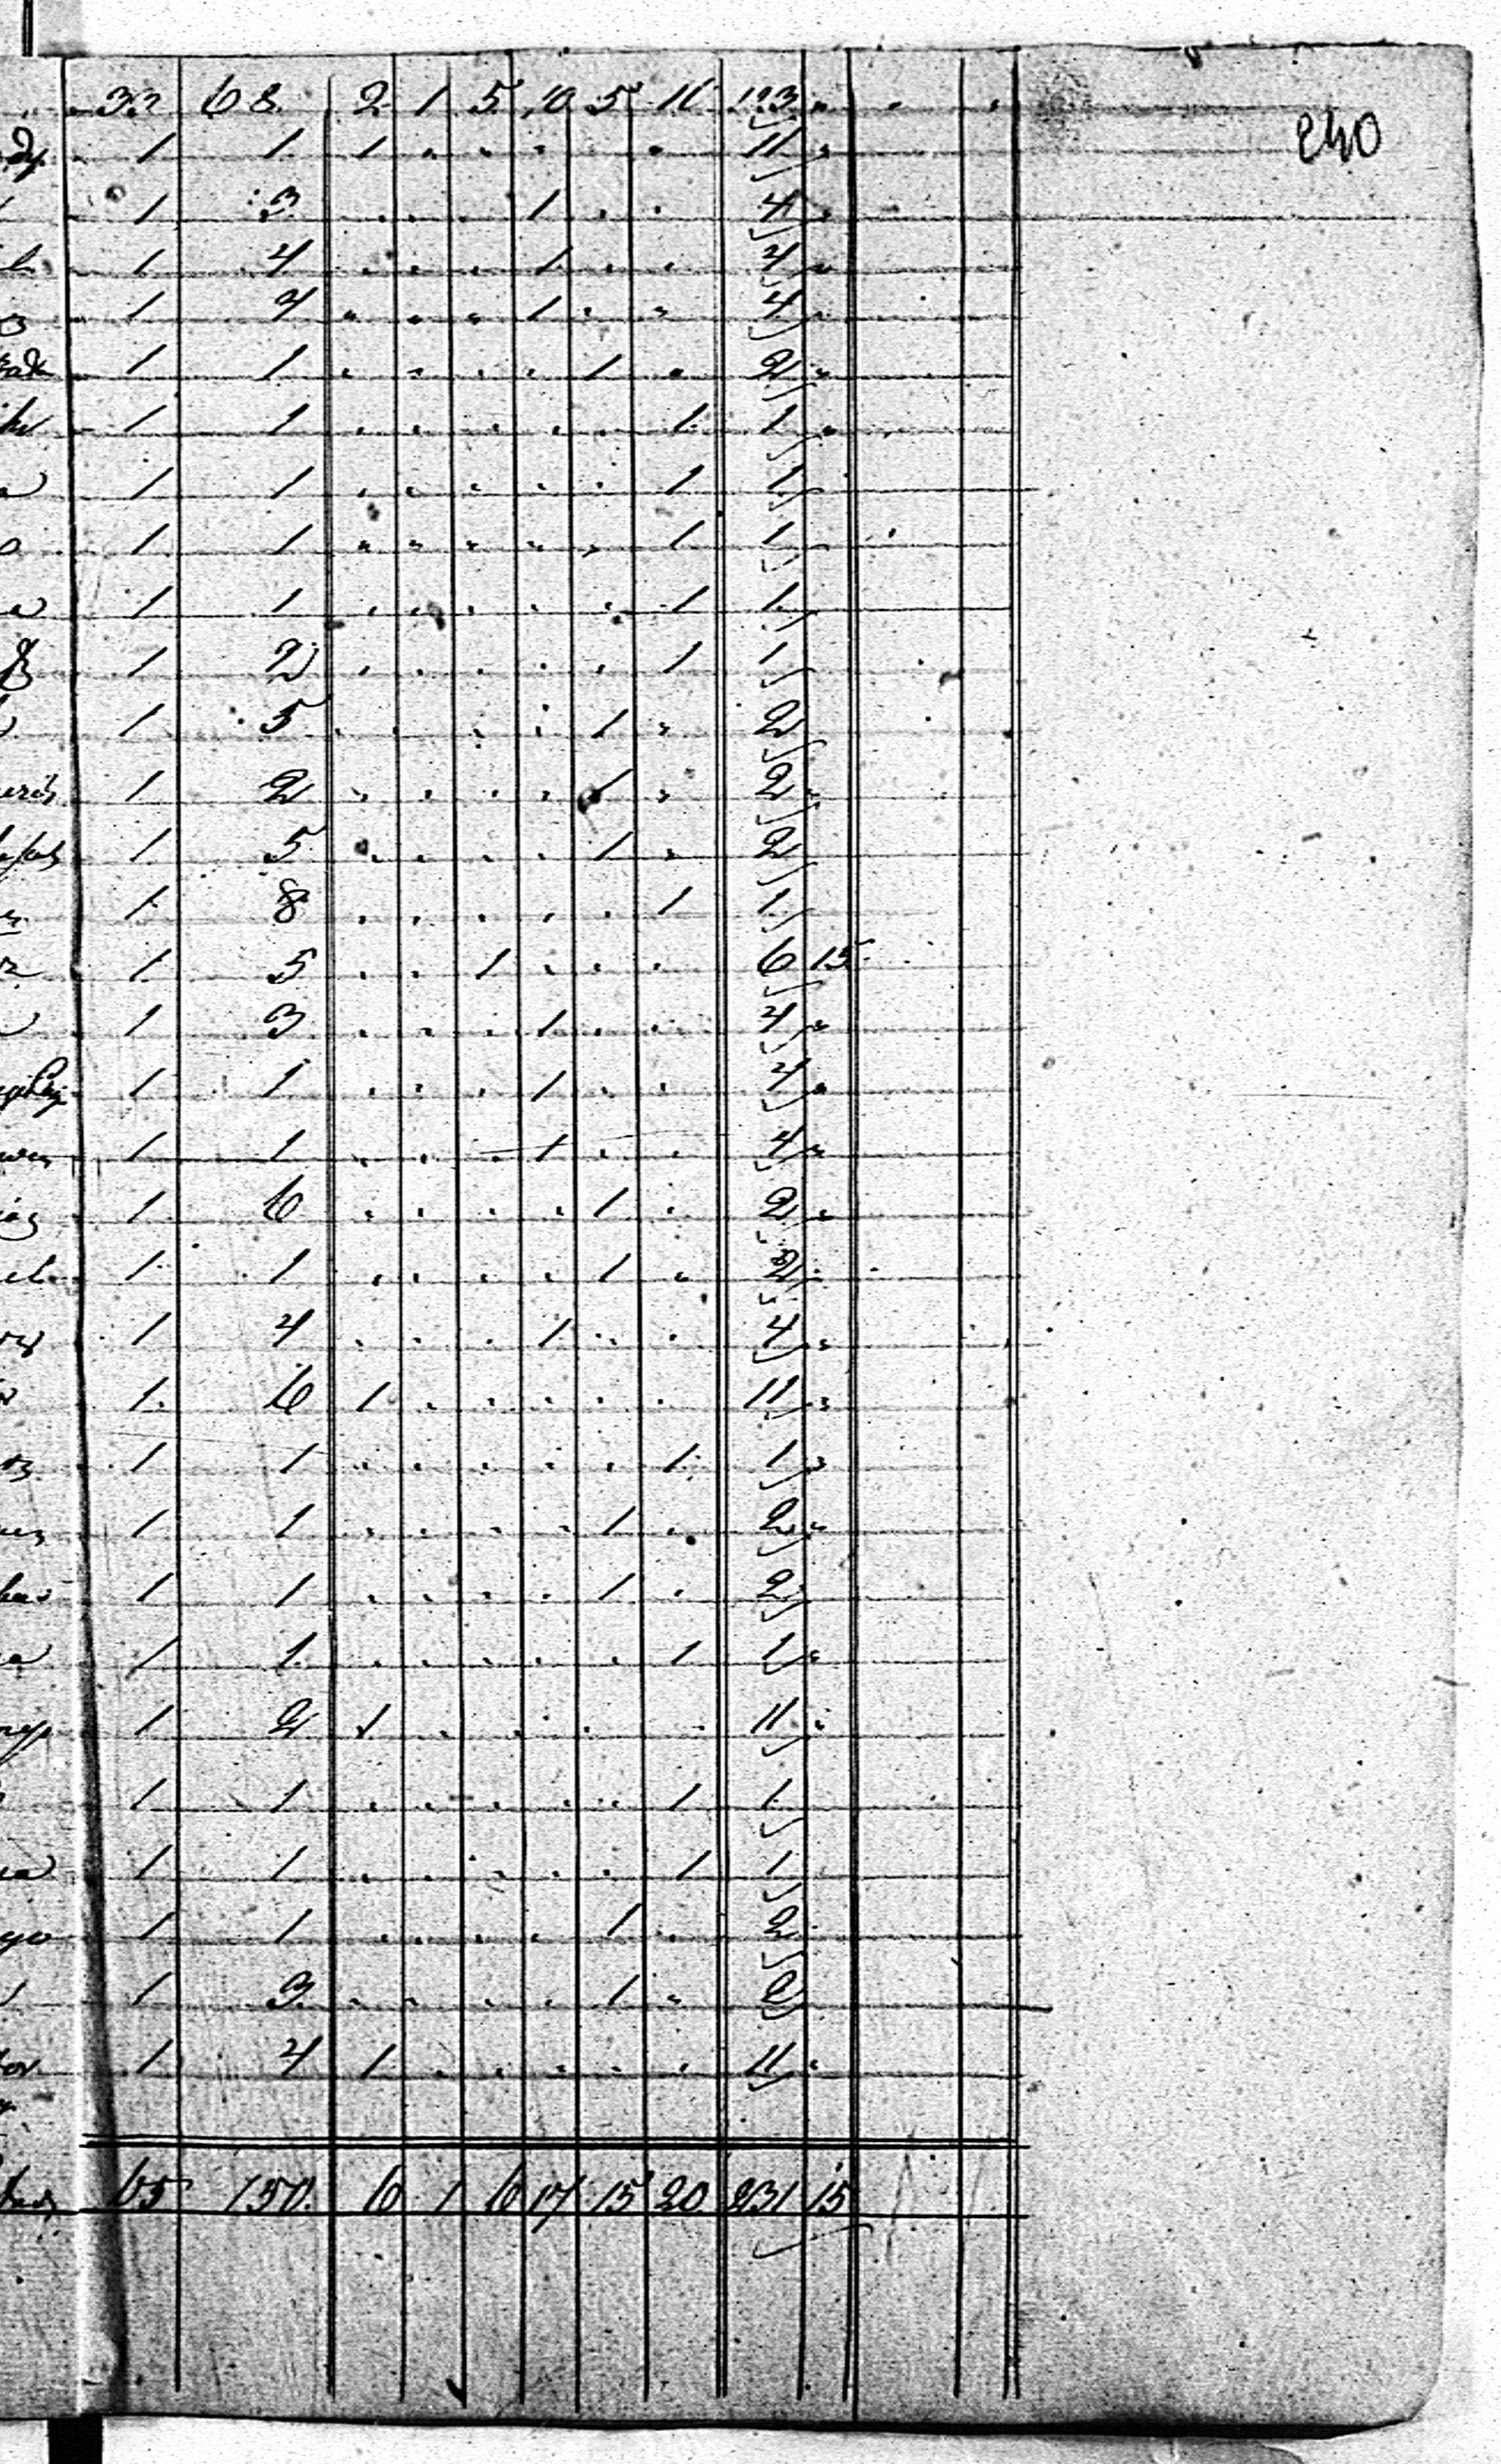 33 68 2 1 5 10 5 10 123
240
1 1 1 11
1 3 1 4
1 4 1 4
1 4 1 4
1 1 1 2
1 1 1 1
1 1 1 1
1 1 1 1
1 1 1 1
1 2 1 1
1 5 1 2
1 2 1 2
1 5 1 2
1 8 1 1
1 5 1 6 15
1 3 1 4
1 1 1 4
1 1 1 4
1 6 1 2
1 1 1 2
1 4 1 4
1 6 1 11
1 1 1 1
1 1 1 2
1 1 1 2
1 1 1 1
1 2 1 11
1 1 1 1
1 1 1 1
1 1 1 2
1 3 1 2
1 4 1 11
65 150 6 1 6 17 15 20 231 15